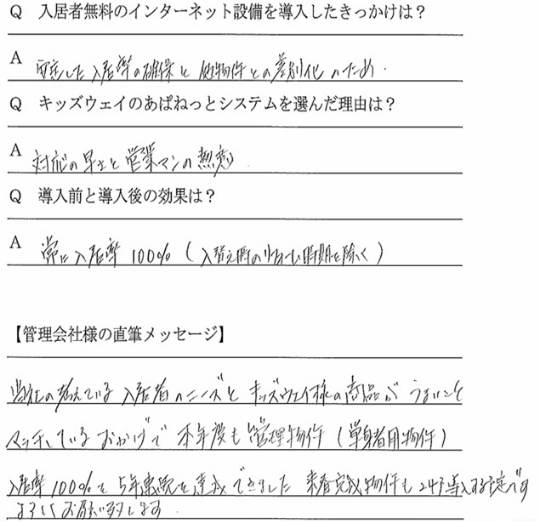 Q 入居者無料のインターネット設備を導入したきっかけは？
A 安定した入居率の確保と他物件との差別化のため.
Q キッズウェイのあぱねっとシステムを選んだ理由は？
A 対応の早さと営業マンの熱意.
Q 導入前と導入後の効果は？
A 常に入居率100%(入替え時のリフォーム時期を除く)
【管理会社様の直筆メッセージ】
当社の考えている入居者のニーズとキッズウェイ様の商品がうまいこと
マッチしているおかげで本年度も管理物件(単身者用物件)
入居率100%を5年連続を達成できました 来春完成物件も2件導入する予定です
よろしくお願い致します